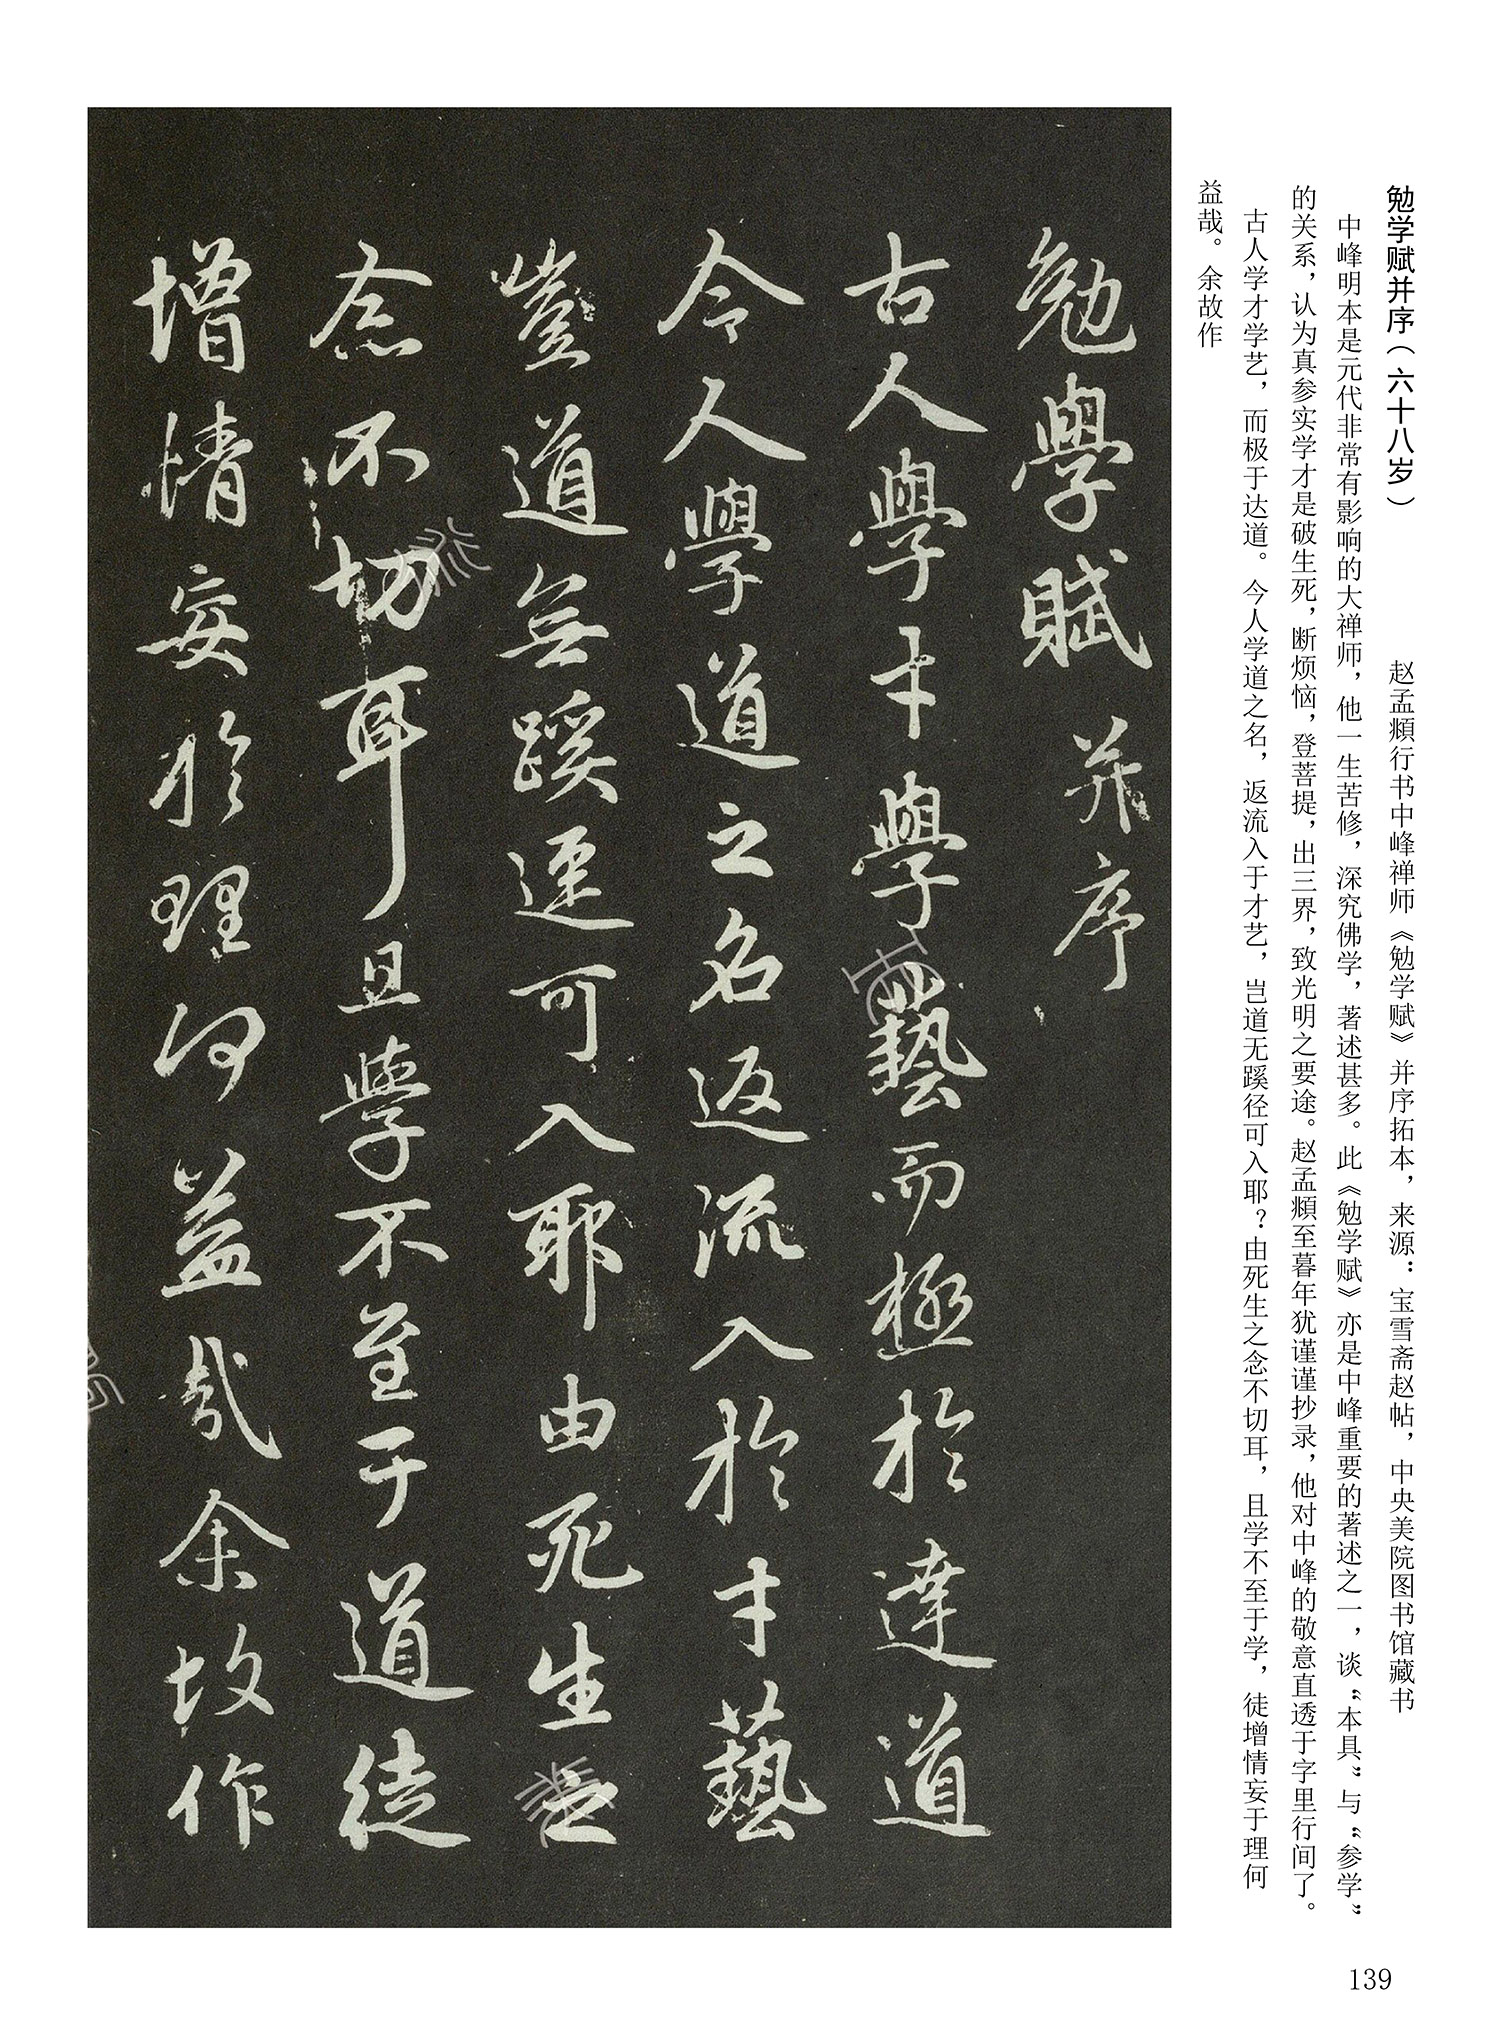 勉学赋并序（六十八岁） 赵孟頫行书中峰禅师《勉学赋》并序拓本，来源：宝雪斋赵帖，中央美院图书馆藏书
中峰明本是元代非常有影响的大禅师，他一生苦修，深究佛学，著述甚多。此《勉学赋》亦是中峰重要的著述之一，谈“本具”与“参学”
的关系，认为真参实学才是破生死，断烦恼，登菩提，出三界，致光明之要途。赵孟頫至暮年犹谨谨抄录，他对中峰的敬意直透于字里行间了。
古人学才学艺，而极于达道。今人学道之名，返流入于才艺，岂道无蹊径可入耶？由死生之念不切耳，且学不至于学，徒增情妄于理何
益哉。余故作
勉學賦并序
古人學才學藝而極於達道
今人學道之名返流入於才藝
豈道無蹊逕可入耶由死生之
念不切耳且學不至于道徒
增情妄於理何益哉余故作
139